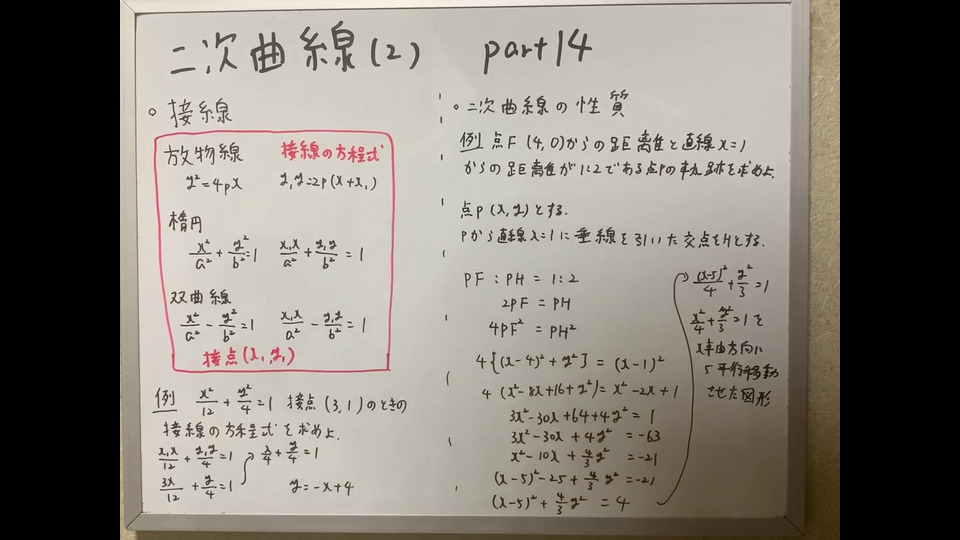 二次曲線(2) part14
○接線
放物線 接線の方程式
y²=4px y₁y=2p(x+x₁)
楕円
x²/a²+y²/b²=1 x₁x/a²+y₁y/b²=1
双曲線
x²/a²-y²/b²=1 x₁x/a²-y₁y/b²=1
接点(x₁,y₁)
例 x²/12+y²/4=1 接点(3,1)のときの
接線の方程式を求めよ.
x₁x/12+y₁y/4=1
3x/12+y/4=1
x/4+y/4=1
y=-x+4
○二次曲線の性質
例 点F(4,0)からの距離と直線x=1
からの距離が1:2である点Pの軌跡を求めよ.
点P(x,y)とする.
Pから直線x=1に垂線を引いた交点をHとする.
PF:PH=1:2
2PF=PH
4PF²=PH²
4{(x-4)²+y²}=(x-1)²
4(x²-8x+16+y²)=x²-2x+1
3x²-30x+64+4y²=1
3x²-30x+4y²=-63
x²-10x+4/3y²=-21
(x-5)²-25+4/3y²=-21
(x-5)²+4/3y²=4
(x-5)²/4+y²/3=1
x²/4+y²/3=1を
x軸方向に
5平行移動
させた図形